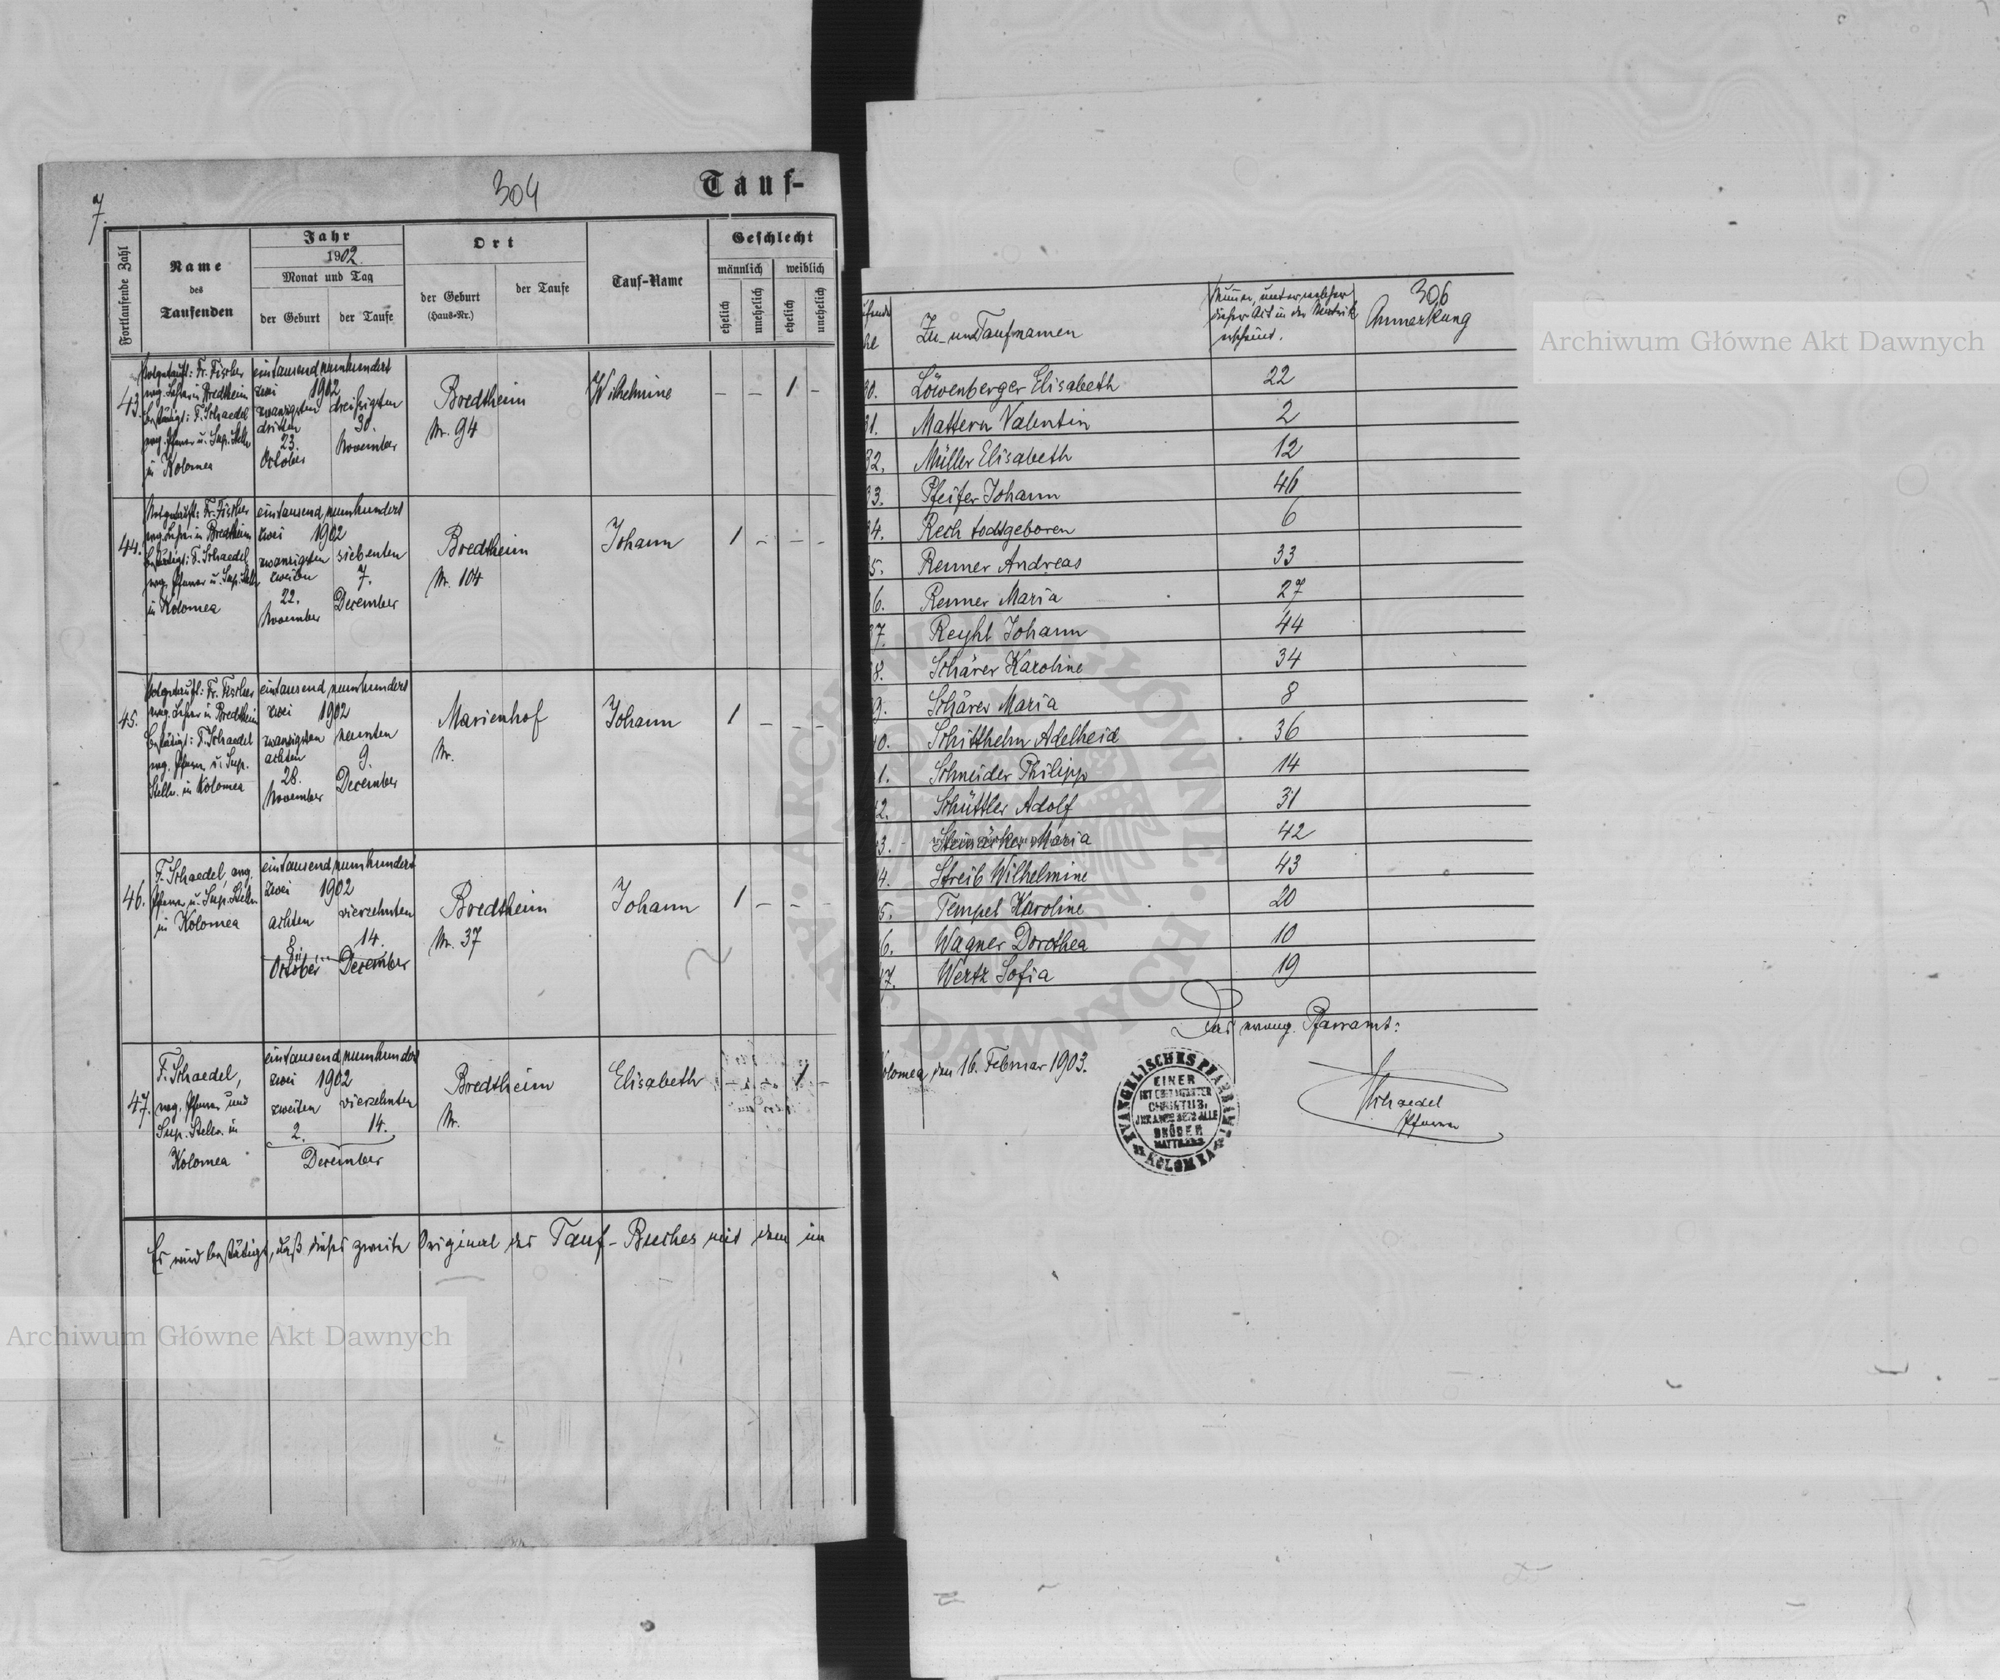 7.
304
Tauf-
Fortlaufende Zahl
Name
des
Taufenden
Jahr
1902
Monat und Tag
der Geburt
der Taufe
Ort
der Geburt
(Haus-Nr.)
der Taufe
Tauf-Name
Geschlecht
männlich
weiblich
ehelich
unehelich
ehelich
unehelich
43.
Notgetauft: Fr. Fischer
evg. Lehrer in Bredtheim
bestätigt: F. Schaedel
evg. Pfarrer u. Sup. Stellv.
in Kolomea
eintausend neunhundert
zwei 1902
zwanzigsten dreißigsten
dritten 30.
23. November
October
Bredtheim
Nr. 94
Wilhelmine
– – 1 –
44.
Notgetauft: Fr. Fischer
evg. Lehrer in Bredtheim
bestätigt: F. Schaedel
evg. Pfarrer u. Sup. Stellv.
in Kolomea
eintausend neunhundert
zwei 1902
zwanzigsten siebenten
zweiten 7.
22. December
November
Bredtheim
Nr. 104
Johann
1 – – –
45.
Notgetauft: Fr. Fischer
evg. Lehrer in Bredtheim
bestätigt: F. Schaedel
evg. Pfarrer u. Sup.
Stellv. in Kolomea
eintausend neunhundert
zwei 1902
zwanzigsten neunten
achten 9.
28. December
November
Marienhof
Nr.
Johann
1 – – –
46.
F. Schaedel, evg.
Pfarrer u. Sup. Stellv.
in Kolomea
eintausend neunhundert
zwei 1902
achten vierzehnten
8. 14.
October December
Bredtheim
Nr. 37
Johann
1 – – –
47.
F. Schaedel,
evg. Pfarrer und
Sup. Stellv. in
Kolomea
eintausend neunhundert
zwei 1902
zweiten vierzehnten
2. 14.
December
Bredtheim
Nr.
Elisabeth
1 –
Es wird bestätigt, daß dieses zweite Original des Tauf-Buches mit dem im
Zu- und Taufnamen
Numer, unter welcher
dieser Act in der Matrik
erscheint.
306
Anmerkung
30. Löwenberger Elisabeth 22
31. Mattern Valentin 2
32. Müller Elisabeth 12
33. Pfeifer Johann 46
34. Rech todtgeboren 6
5. Renner Andreas 33
6. Renner Maria 27
7. Reyhl Johann 44
8. Schärer Karoline 34
9. Schärer Maria 8
0. Schitthelm Adelheid 36
1. Schneider Philipp 14
2. Schüttler Adolf 31
3. Steinärker Maria 42
4. Streib Wilhelmine 43
5. Tempel Karoline 20
6. Wagner Dorothea 10
7. Wertz Sofia 19
Das evang. Pfarramt:
Kolomea, den 16. Februar 1903.
EVANGELISCHES PFARRAMT
KOLOMEA
EINER
IST EUER MEISTER
CHRISTUS,
IHR ABER SEID ALLE
BRÜDER
MATTH 23.8
Schaedel
Pfarrer
Archiwum Główne Akt Dawnych
Archiwum Główne Akt Dawnych
ARCHIWUM GŁÓWNE
AKT DAWNYCH